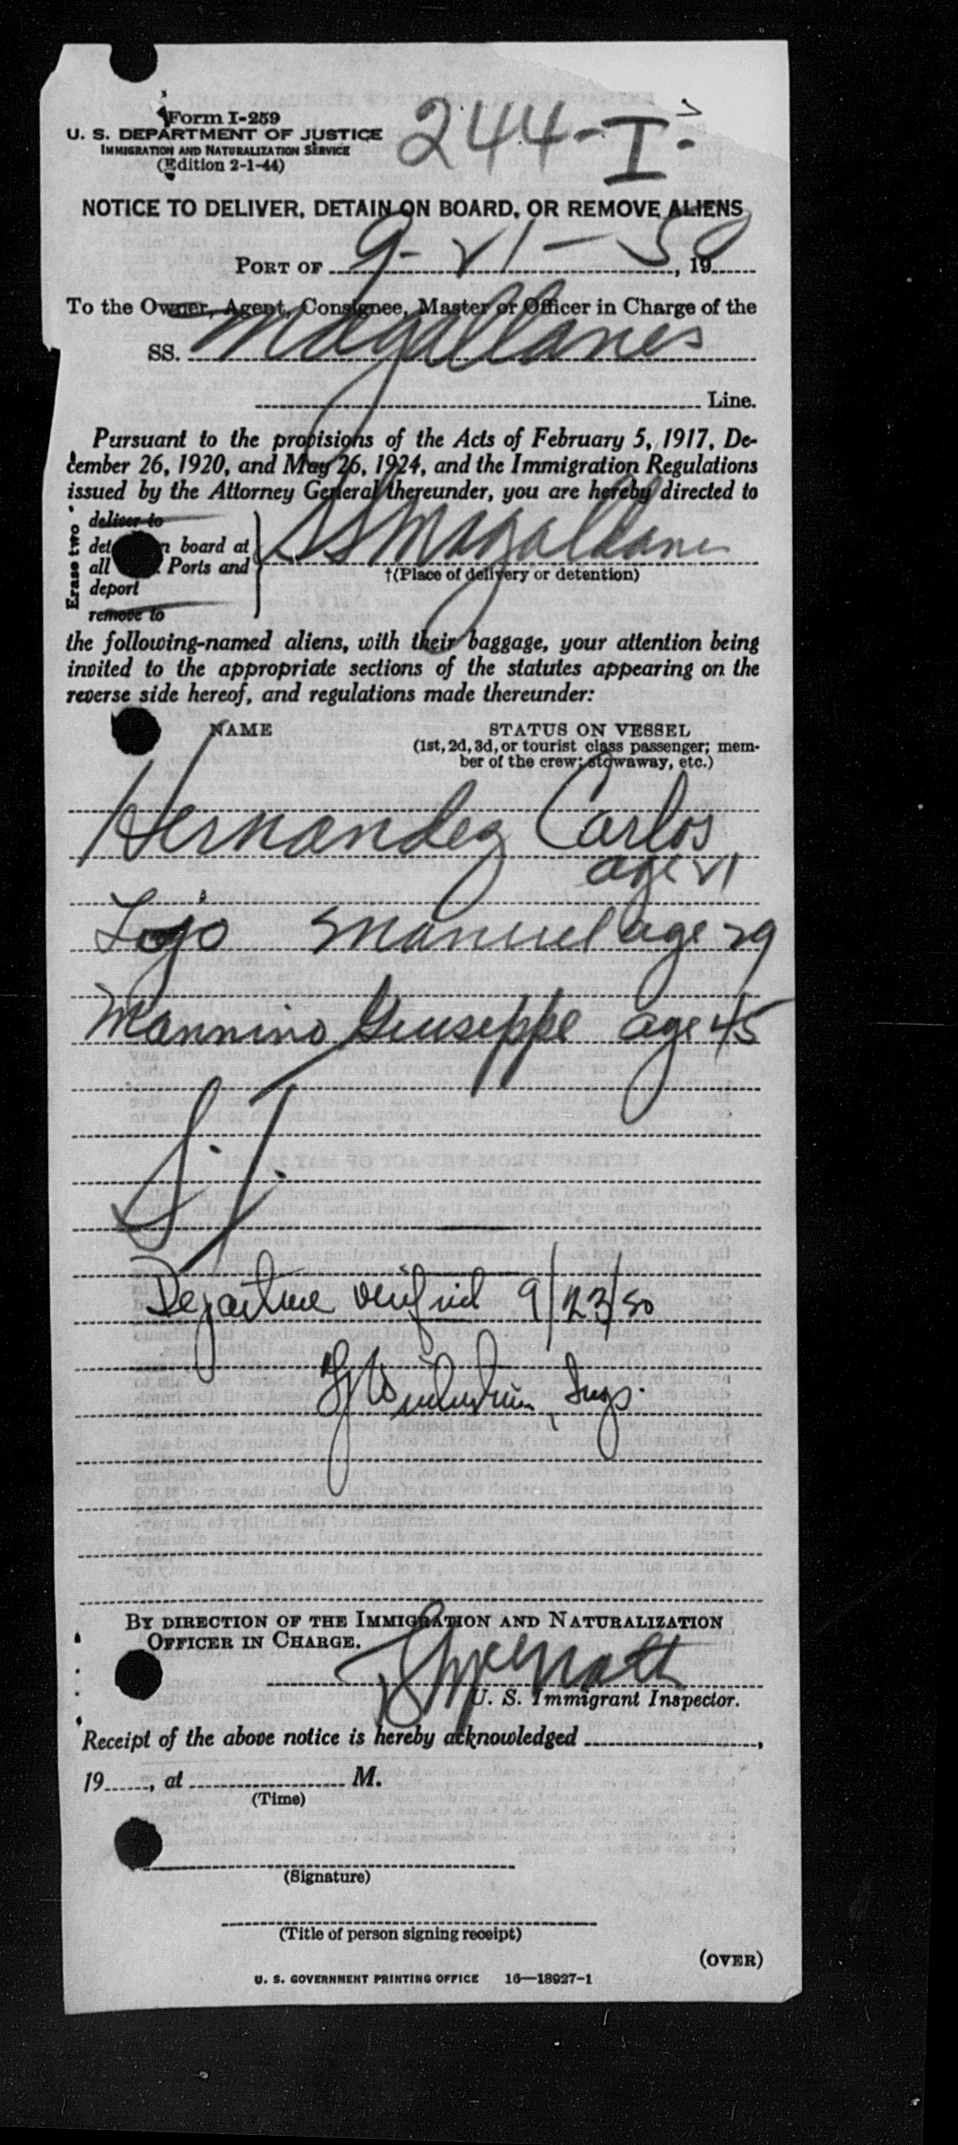 244-I.
Form I-259
U. S. DEPARTMENT OF JUSTICE
IMMIGRATION AND NATURALIZATION SERVICE
(Edition 2-1-44)
NOTICE TO DELIVER, DETAIN ON BOARD, OR REMOVE ALIENS
PORT OF 9-21-50, 19
To the Owner, Agent, Consignee, Master or Officer in Charge of the
SS. Magallanes
Line.
Pursuant to the provisions of the Acts of February 5, 1917, De-
cember 26, 1920, and May 26, 1924, and the Immigration Regulations
issued by the Attorney General thereunder, you are hereby directed to
Erase two
deliver to
board at
all Ports and
deport
remove to
SS Magallanes
†(Place of delivery or detention)
the following-named aliens, with their baggage, your attention being
invited to the appropriate sections of the statutes appearing on the
reverse side hereof, and regulations made thereunder:
NAME STATUS ON VESSEL
(1st, 2d, 3d, or tourist class passenger; mem-
ber of the crew; stowaway, etc.)
Hernandez Carlos
age 21
Manuel age 29
Mannino Giuseppe age 45
Departure verified 9/23/50
BY DIRECTION OF THE IMMIGRATION AND NATURALIZATION
OFFICER IN CHARGE.
U. S. Immigrant Inspector.
Receipt of the above notice is hereby acknowledged ,
19 , at M.
(Time)
(Signature)
(Title of person signing receipt)
(OVER)
U. S. GOVERNMENT PRINTING OFFICE 16—18927-1